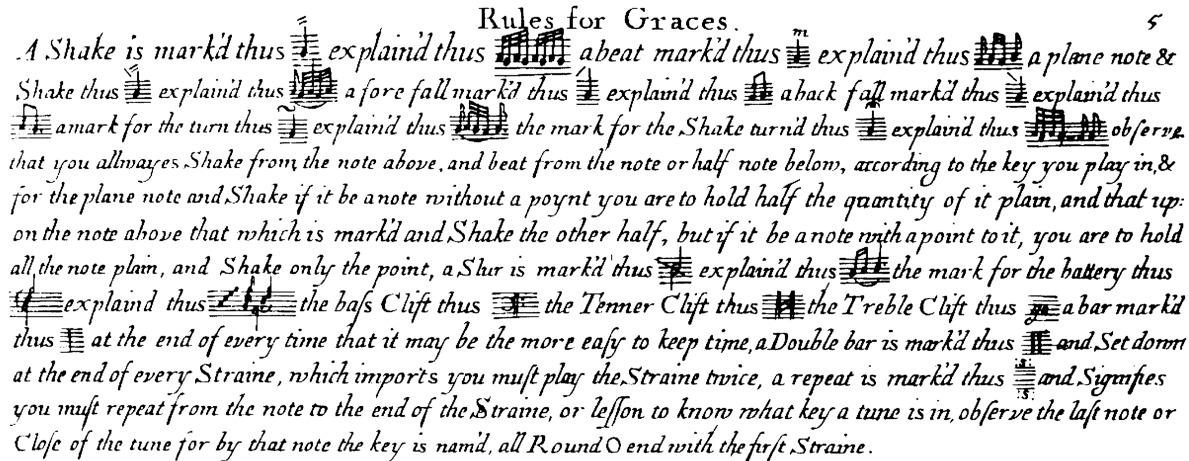 Rules for Graces. 5
A Shake is mark'd thus explain'd thus a beat mark'd thus explain'd thus a plane note &
Shake thus explain'd thus a fore fall mark'd thus explain'd thus a back fall mark'd thus explain'd thus
a mark for the turn thus explain'd thus the mark for the Shake turn'd thus explain'd thus obſerve
that you allwayes Shake from the note above, and beat from the note or half note below, according to the key you play in, &
for the plane note and Shake if it be a note without a poynt you are to hold half the quantity of it plain, and that up:
on the note above that which is mark'd and Shake the other half, but if it be a note with a point to it, you are to hold
all the note plain, and Shake only the point, a Slur is mark'd thus explain'd thus the mark for the battery thus
explaind thus the baſs Clift thus the Tenner Clift thus the Treble Clift thus a bar mark'd
thus at the end of every time that it may be the more eaſy to keep time, a Double bar is mark'd thus and Set down
at the end of every Straine, which imports you muſt play the Straine twice, a repeat is mark'd thus :S: and Signifies
you muſt repeat from the note to the end of the Straine, or leſſon to know what key a tune is in, obſerve the laſt note or
Cloſe of the tune for by that note the key is nam'd, all Round O end with the firſt Straine.